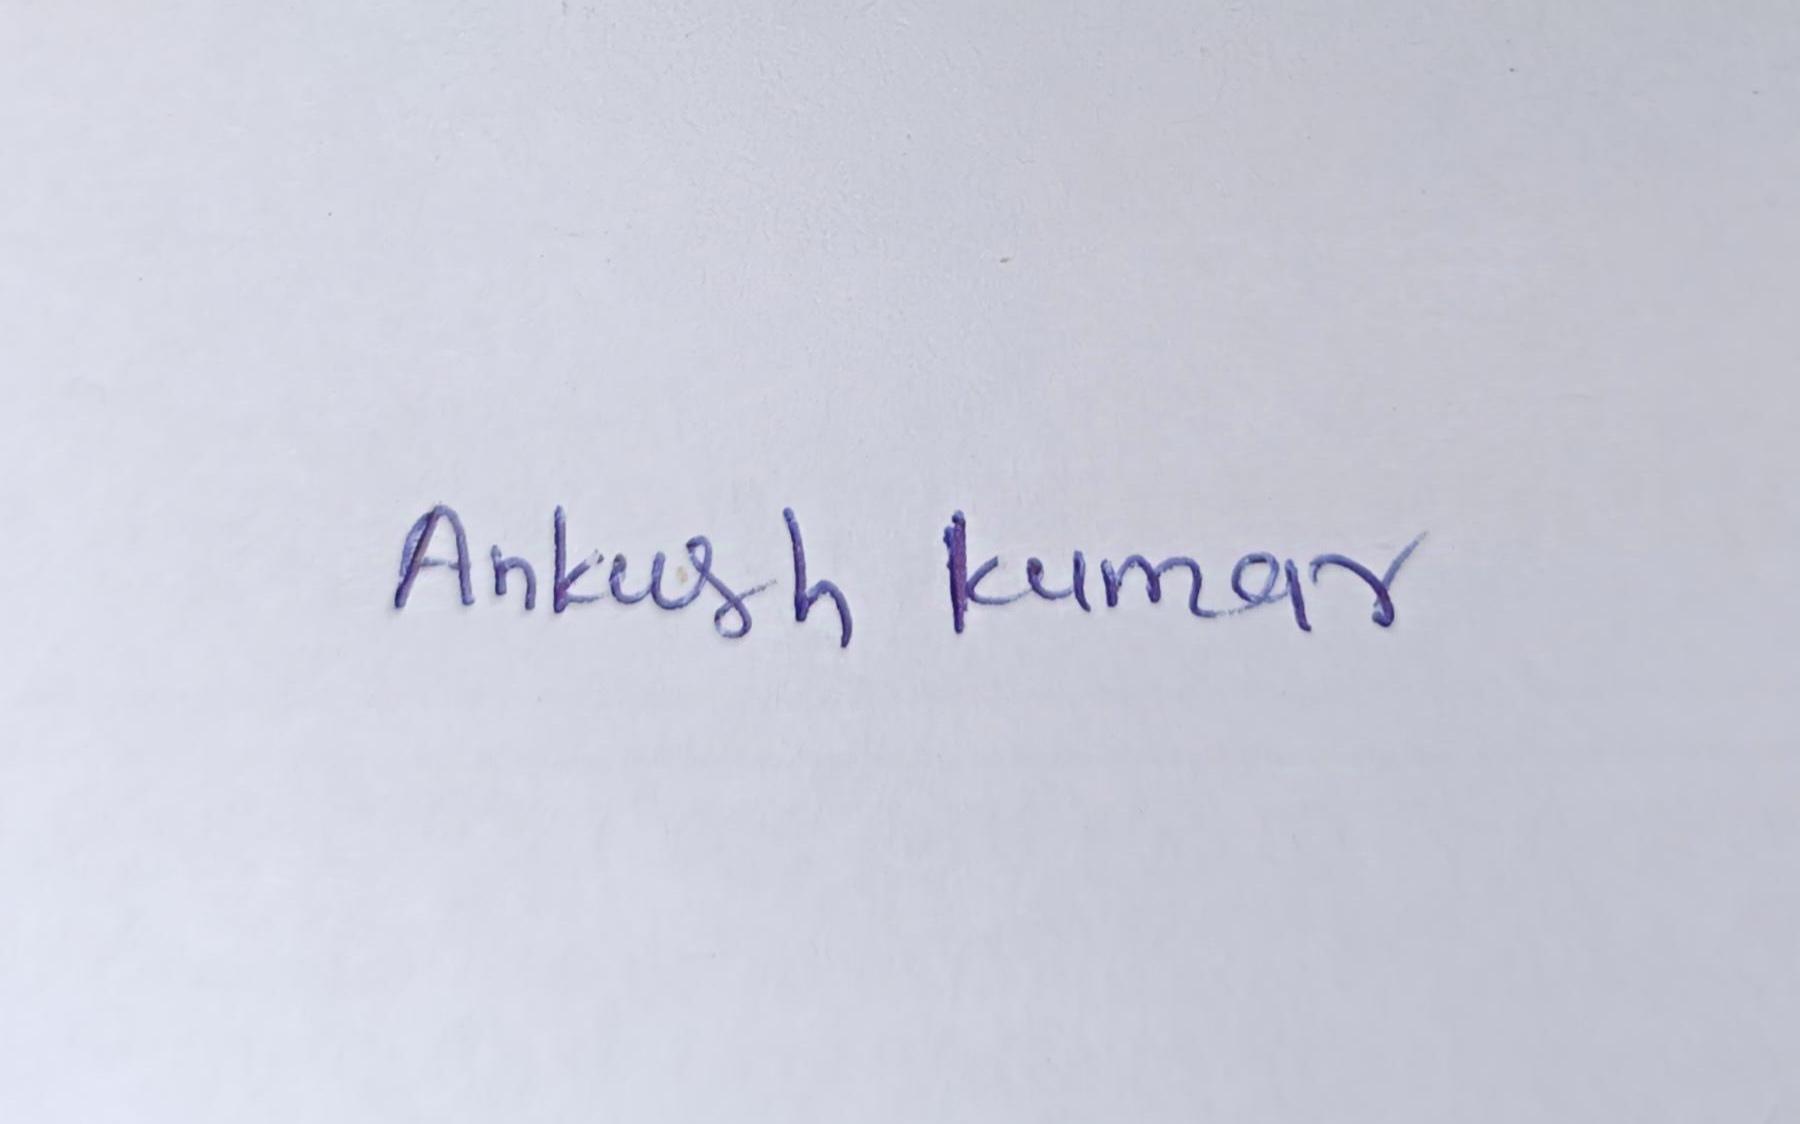 Ankush kumar